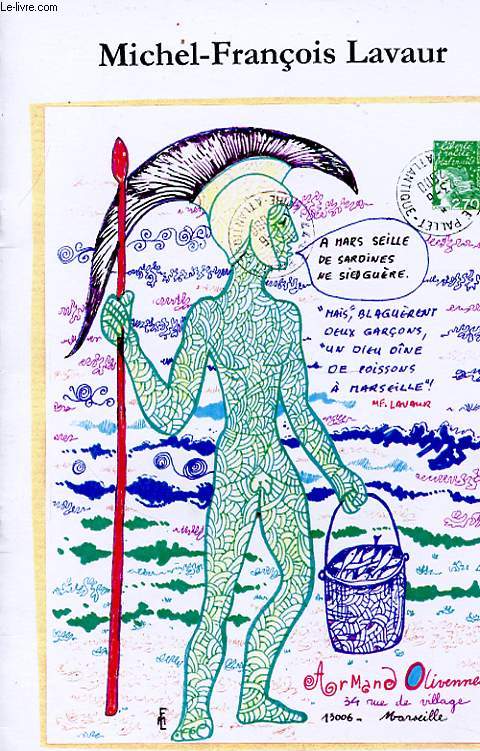 Le-livre.com
Michel-François Lavaur
LE PALLET
ATLANTIQUE
2,70
A MARS SEILLE
DE SARDINES
NE SIED GUÈRE.
"MAIS," BLAGUÈRENT
DEUX GARÇONS,
"UN DIEU DÎNE
DE POISSONS
À MARSEILLE"!
MF. LAVAUR
Armand Olivennes
34 rue de village
13006 - Marseille